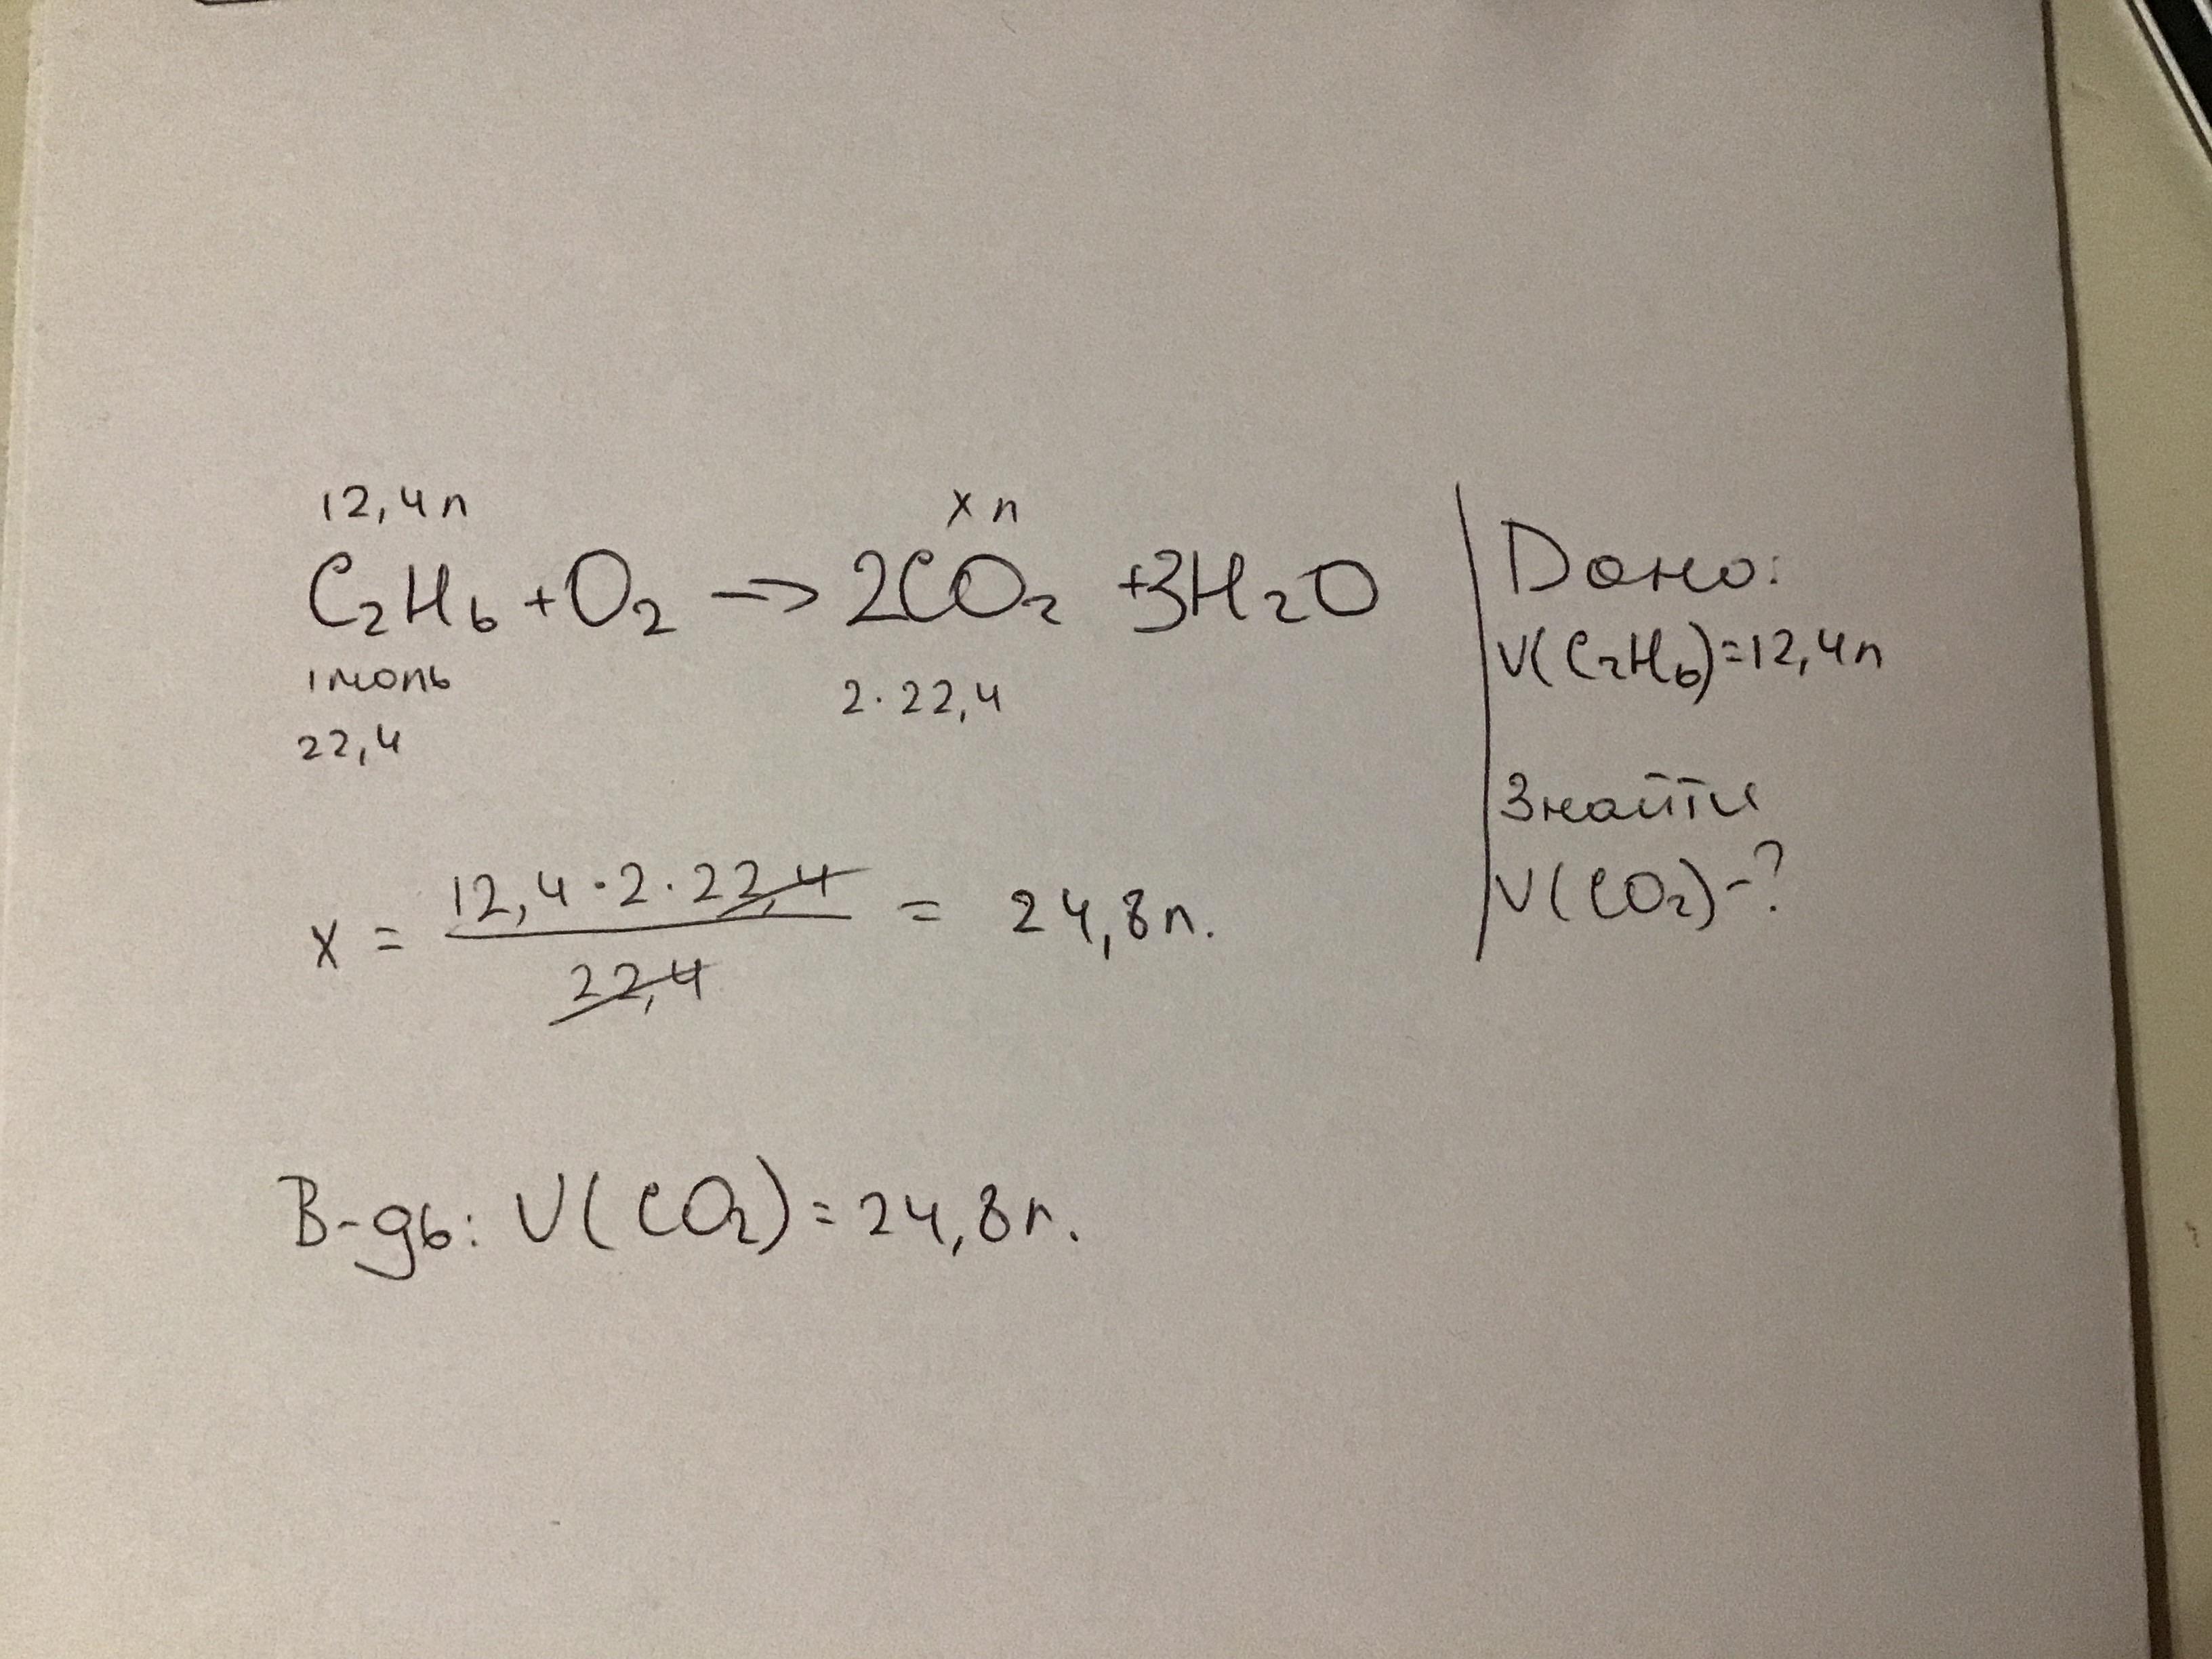 12,4л
x л
C₂H₆ + O₂ → 2CO₂ + 3H₂O
1 моль
22,4
2·22,4
x = 12,4·2·22,4 / 22,4 = 24,8л.
В-дь: V(CO₂) = 24,8л.
Дано:
V(C₂H₆)=12,4л
Знайти
V(CO₂)-?